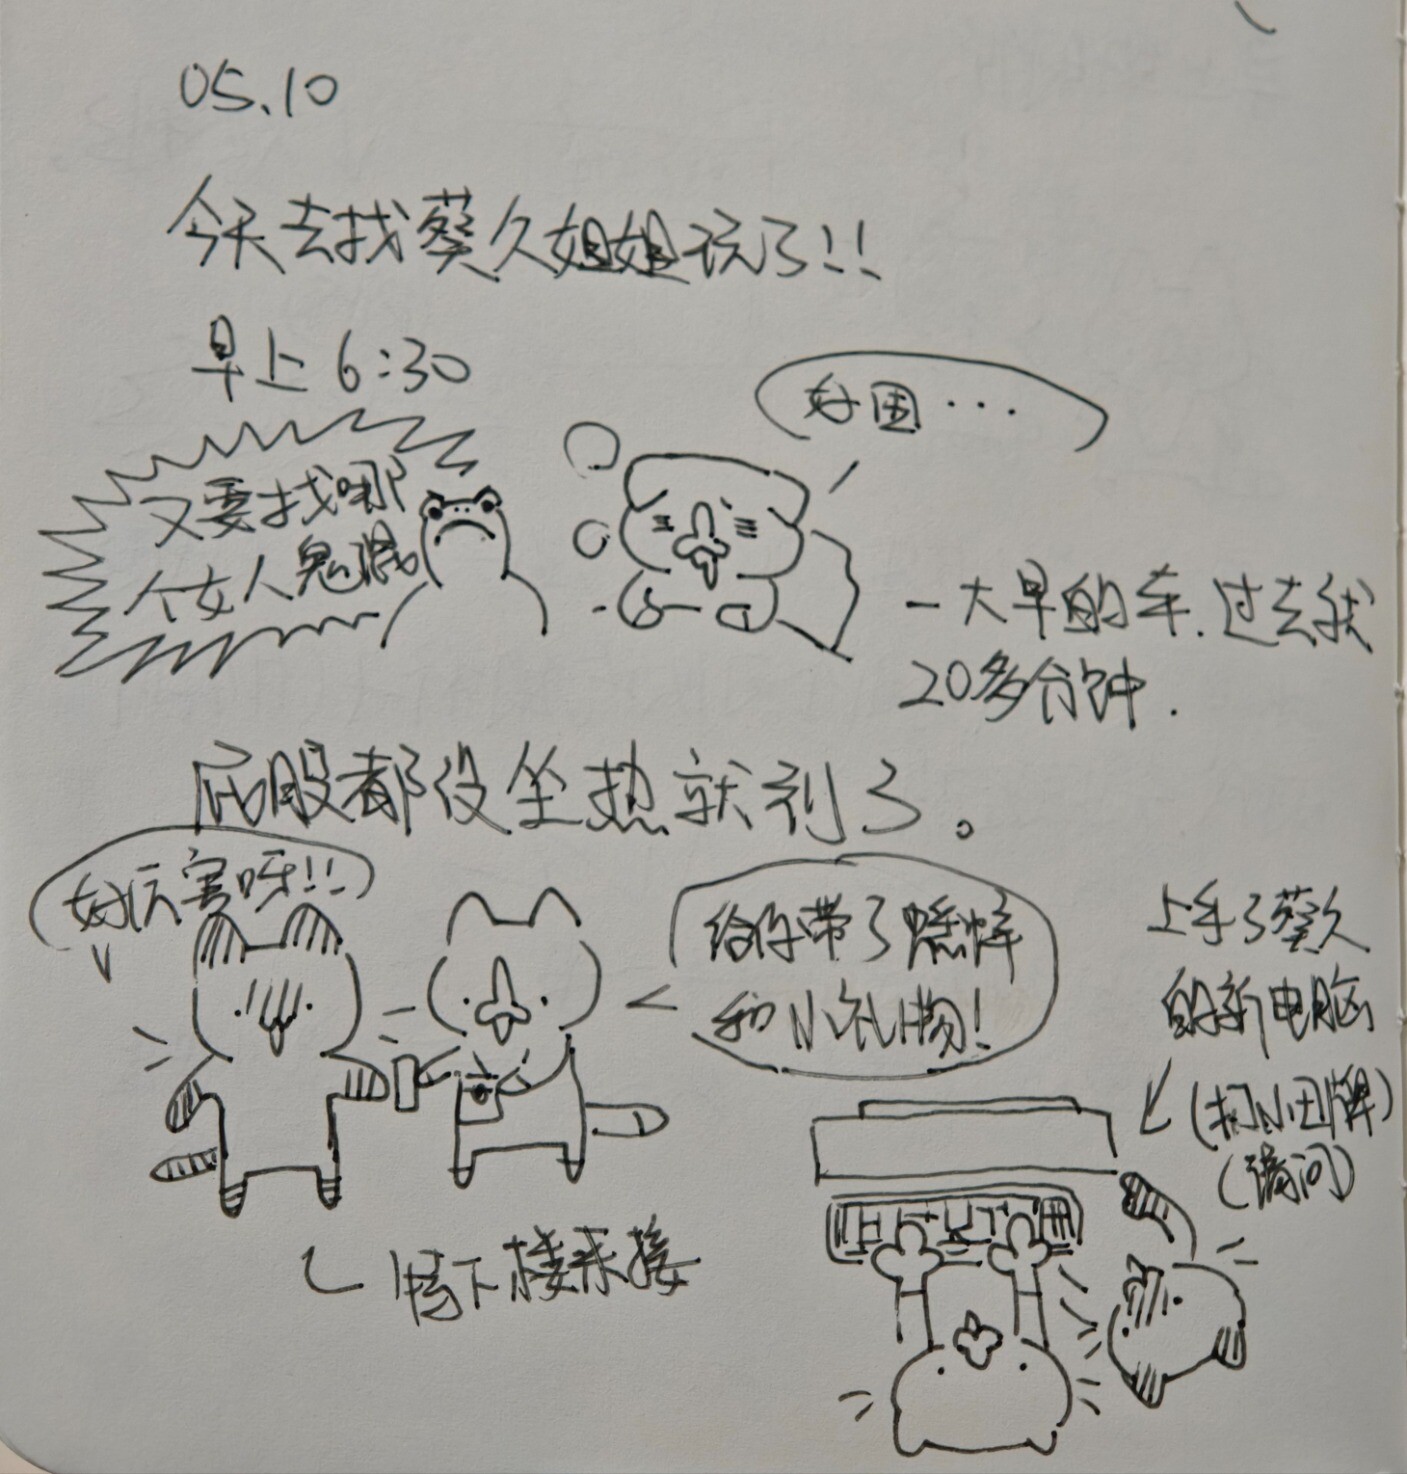 05.10
今天去找葵久姐姐玩了!!
早上6:30
好困···
又要找哪
个女人鬼混
一大早的车.过去就
20多分钟.
屁股都没坐热就到了。
好厉害呀!!
给你带了
和小礼物!
特下楼来接
上手了葵久
的新电脑